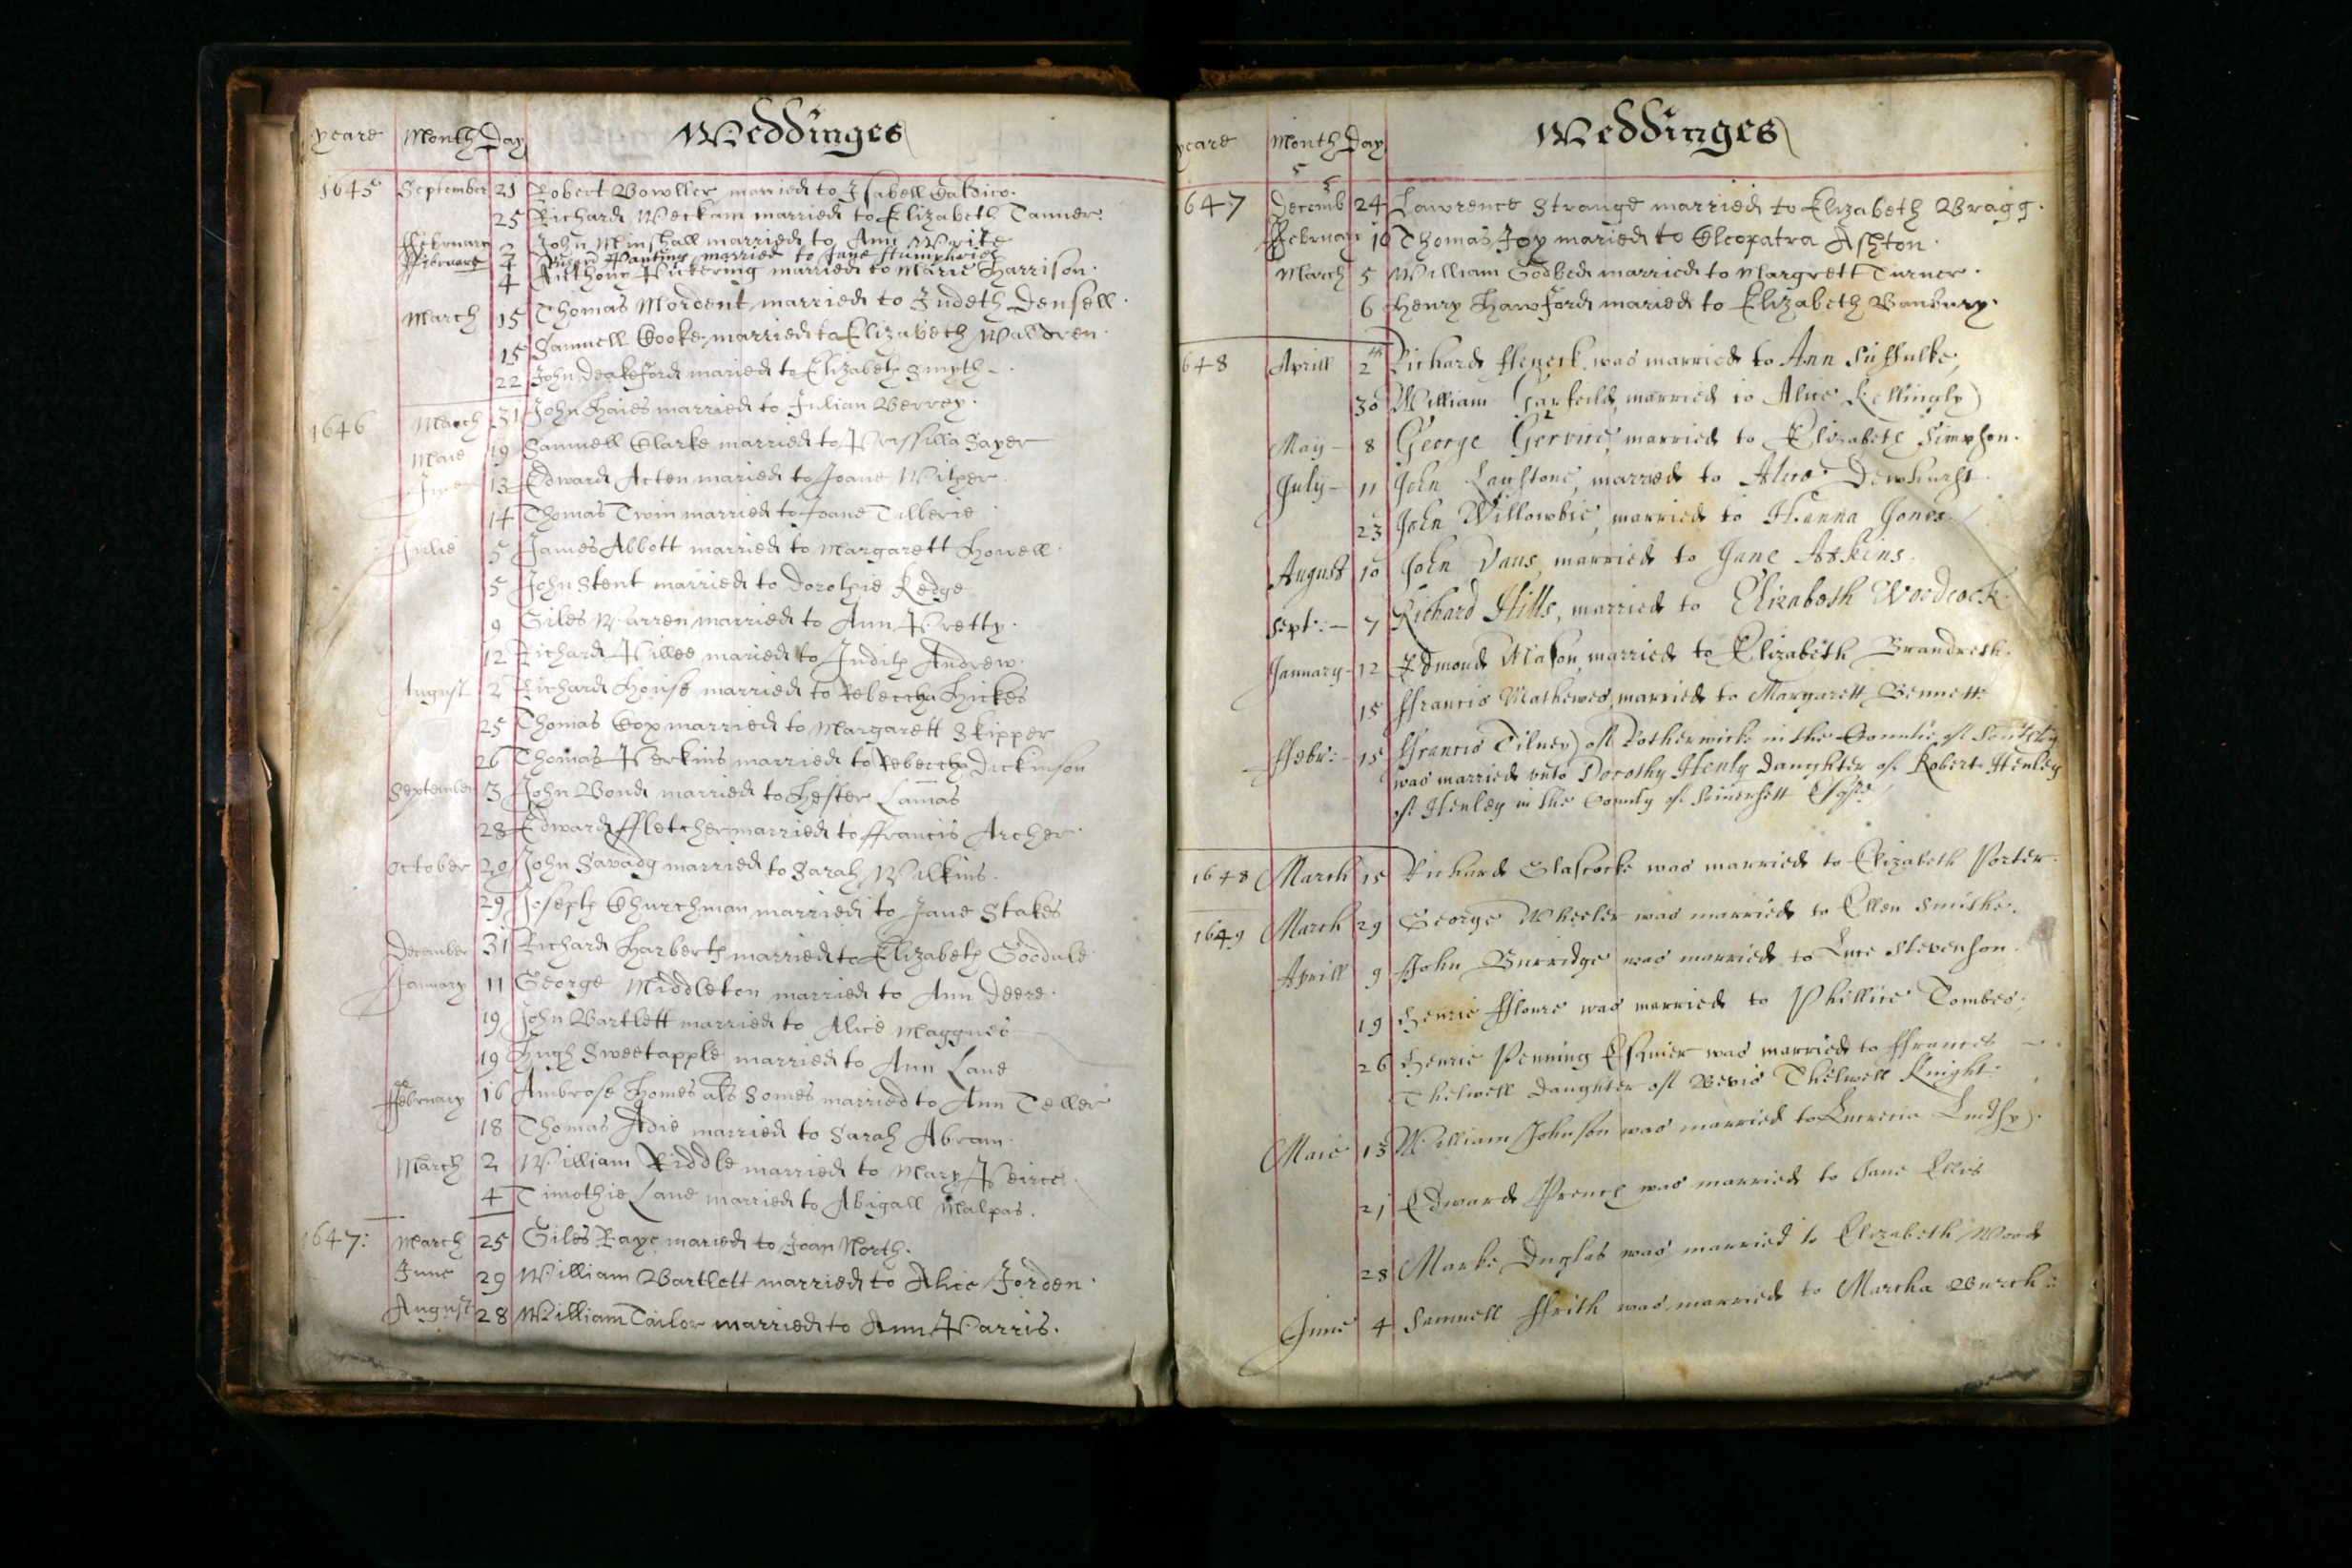 yeare Month Day Weddinges
1645 September 21 Robert Bowller married to Isabell
25 Richard Weckam married to Elizabeth Tanner
ffebruare 2 John Minshall married to Ann Write
ffebruare 2 married to Jane Humphries
4 Anthony Pickering married to Marie Harrison
March 15 Thomas Mordent married to Judeth Densell
15 Samuell Cooke married to Elizabeth Waldren
22 John Deakeford maried to Elizabeth Smyth
1646 March 31 John Haies married to Julian Berrey
Maie 19 Samuell Clarke married to Prissilla Sayer
June 13 Edward Acten maried to Joane Wilper
14 Thomas Twin married to Joane Tillerie
Julie 5 James Abbott married to Margarett Howell
5 John Stent married to Dorothie Redge
9 Giles Warren married to Ann Pretty
12 Richard Pillee maried to Judith Andrew
August 2 Richard House married to Rebeccha Hickes
25 Thomas Cox married to Margarett Skipper
26 Thomas Perkins married to Rebeccha Dickinson
September 3 John Bond married to Hester Lamas
28 Edward ffletcher married to ffrancis Archer
October 20 John Savadg married to Sarah Wilkins
29 Joseph Churchman married to Jane Stakes
December 31 Richard Harberth married to Elizabeth Goodale
January 11 George Middleton married to Ann Deere
19 John Bartlett married to Alice Maggnes
19 Hugh Sweetapple married to Ann Lane
ffebruary 16 Ambrose Homes als Somes married to Ann Teller
18 Thomas Adie married to Sarah Abram
March 2 William Riddle married to Mary Peirce
4 Timothie Lane married to Abigall Malpas
1647: March 25 Giles Raye maried to Joan North
June 29 William Bartlett married to Alice Jorden
August 28 William Tailor married to Ann Parris
yeare Month Day Weddinges
1647 Decemb 24 Lawrence Strange married to Elizabeth Bragg
ffebruar 10 Thomas Joy maried to Cleopatra Ashton
March 5 William Godbed married to Margrett Turner
6 Henry Hawford maried to Elizabeth Banbury
1648 Aprill 2 Richard was married to Ann Suffulke
30 William Garfeild married to Alice Kellingly
May 8 George Gervice married to Elizabeth Simpson
July 11 John married to Alice Dewhurst
23 John Willowbie, married to Hanna Jones
August 10 John Daus, married to Jane Atkins
Sept: 7 Richard Hills, married to Elizabeth Woodcock
January 12 Edmond Mason married to Elizabeth Brandreth
15 ffrancis Mathewes married to Margarett Bennett
ffebr: 15 ffrancis Tilney of Rotherwicke in the Countie of
was married unto Dorothy Henly daughter of Robert Henley
of Henley in the County of Somersett Esqr
1648 March 15 Richard Glascocke was married to Elizabeth Porter
1649 March 29 George Wheeler was married to Ellen Smithe
Aprill 9 John Burridge was married to Luce Stevenson
19 Henrie ffloure was married to Phillice Tombes
26 Henrie Penning Esquier was married to ffrances
Thelwell daughter of Bevis Thelwell Knight
Maie 13 William Johnson was married to Lucrecia
21 Edward French was married to Jane Ellis
28 Marke Duglas was married to Elizabeth Wood
June 4 Samuell ffrith was married to Martha Burch